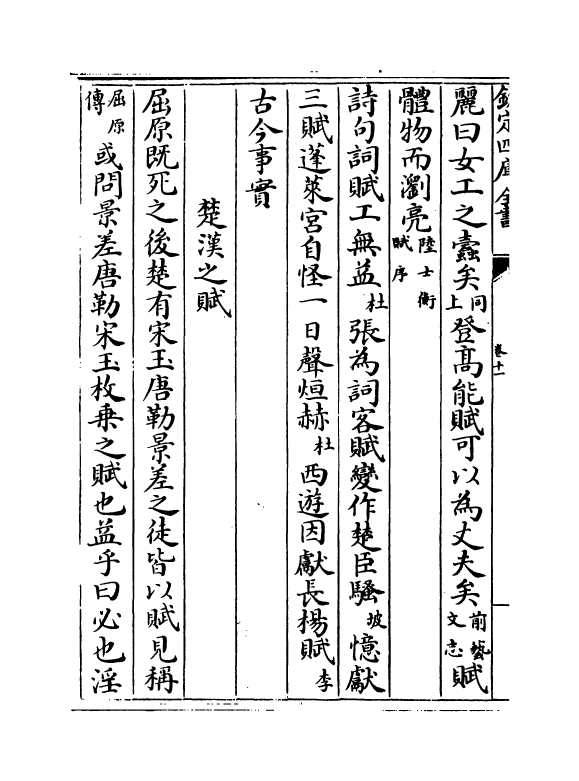 欽定四庫全書
卷十一
麗曰女工之蠧矣同上登髙能賦可以為丈夫矣前藝文志賦
體物而瀏亮陸士衡賦序
詩句詞賦工無益杜張為詞客賦變作楚臣騷坡憶獻
三賦蓬萊宮自怪一日聲烜赫杜西遊因獻長楊賦李
古今事實
楚漢之賦
屈原既死之後楚有宋玉唐勒景差之徒皆以賦見稱
屈原傳或問景差唐勒宋玉枚乗之賦也益乎曰必也淫